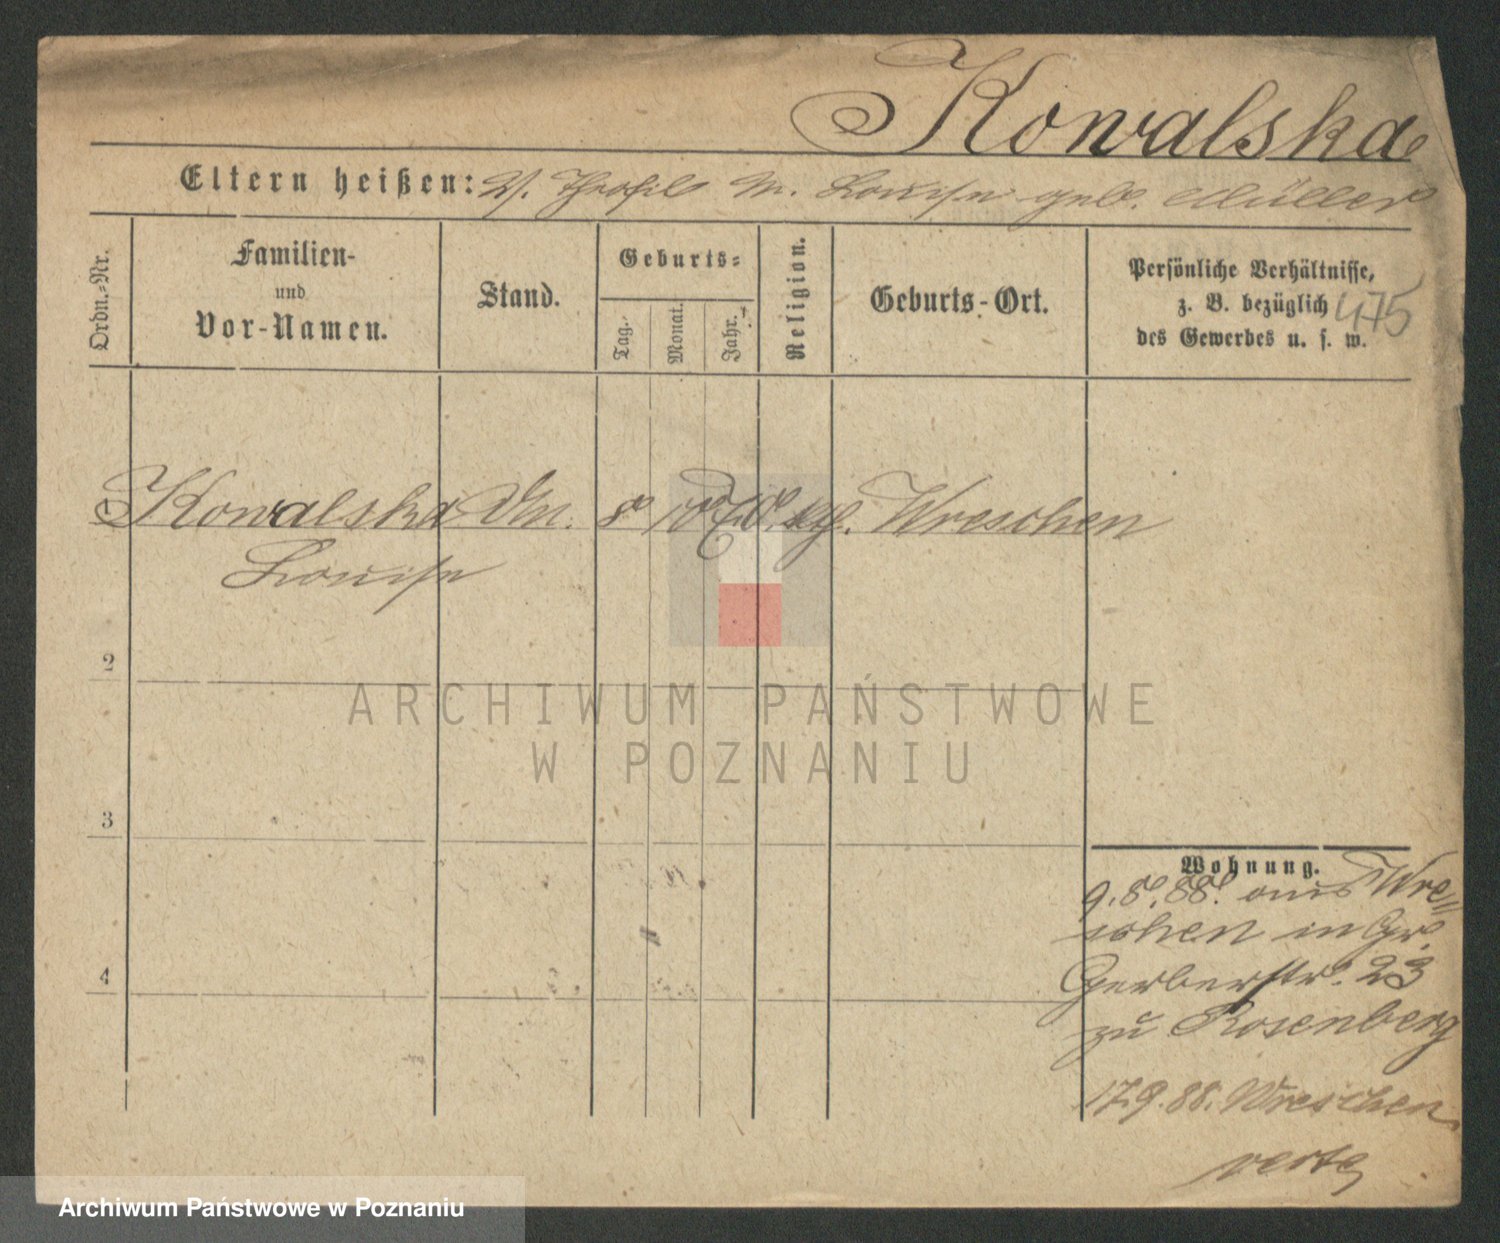 Kowalska
Eltern heißen: V. Theofil M. Louise geb. Müller
Ordn.-Nr.
Familien-
und
Vor-Namen.
Stand.
Geburts-
Tag.
Monat.
Jahr.
Religion.
Geburts-Ort.
Persönliche Verhältnisse,
z. B. bezüglich
des Gewerbes u. s. w.
475
Kowalska 8 10 Wreschen
Louise
2
3
4
ARCHIWUM PAŃSTWOWE
W POZNANIU
Wohnung.
9.8.88. aus Wre=
schen in Gr.
Gerberstr. 23
zu Rosenberg
17.9.88. Wreschen
verte
Archiwum Państwowe w Poznaniu